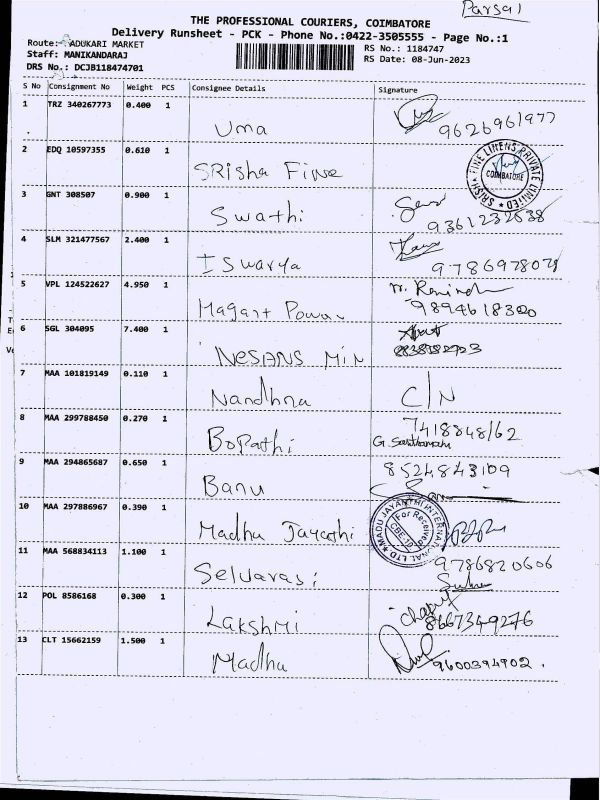 Parsal
THE PROFESSIONAL COURIERS, COIMBATORE
Delivery Runsheet - PCK - Phone No.:0422-3505555 - Page No.:1
Route: ADUKARI MARKET
Staff: MANIKANDARAJ
DRS No.: DCJB118474701
RS No.: 1184747
RS Date: 08-Jun-2023
S No Consignment No Weight PCS Consignee Details Signature
1 TRZ 340267773 0.400 1 Uma 9626961977
2 EDQ 10597355 0.610 1 SRisha Fine SRISHA FINE LINENS PRIVATE LIMITED COIMBATORE
3 GNT 308507 0.900 1 Swathi 9361232638
4 SLM 321477567 2.400 1 Iswarya
5 VPL 124522627 4.950 1 9894618300
6 SGL 304095 7.400 1 NESANS MiN
7 MAA 101819149 0.110 1 Nandhna C/N
8 MAA 299788450 0.270 1 Bopathi 7418848162
9 MAA 294865687 0.650 1 Banu 8524843109
10 MAA 297886967 0.390 1 Madhu Jayanthi MADU JAYANTHI INTERNATIONAL LTD For Received
11 MAA 568834113 1.100 1 Selvarasi 9786820606
12 POL 8586168 0.300 1 Lakshmi 8667349276
13 CLT 15662159 1.500 1 Madhu 9600394902.